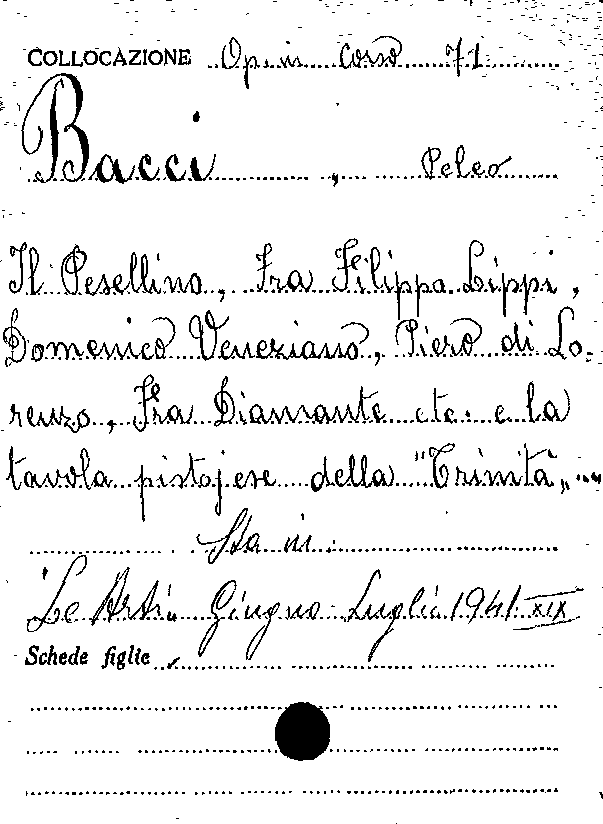 COLLOCAZIONE Op. in corso 71
Bacci, Peleo
Il Pesellino, Fra Filippo Lippi,
Domenico Veneziano, Piero di Lo-
renzo, Fra Diamante etc. e la
tavola pistojese della "Trinità„
Sta in:
"Le Arti„ Giugno-Luglio 1941 XIX
Schede figlie